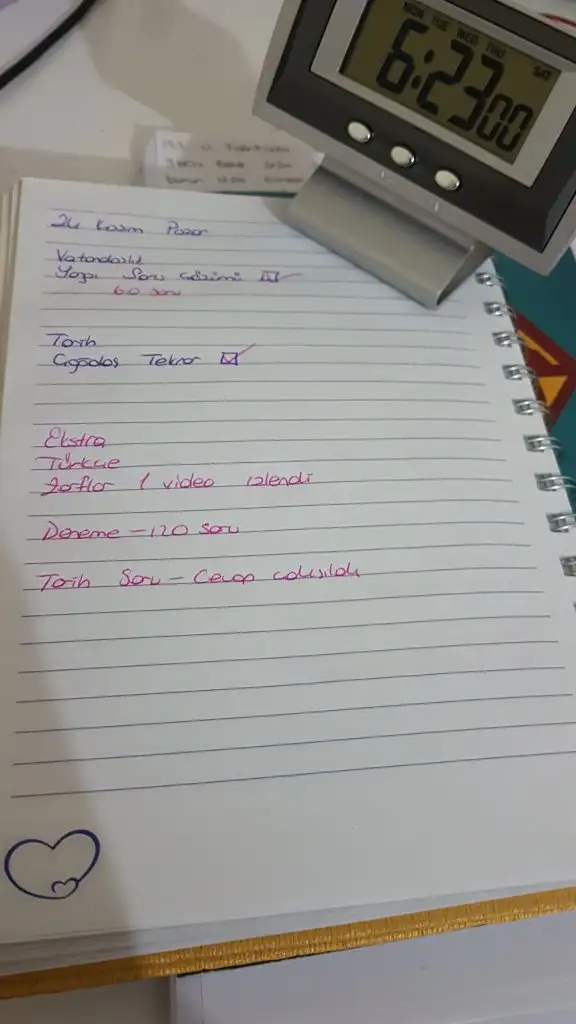 MON TUE WED THU SAT
6:23 00
24 Kasım Pazar
Vatandaşlık
Yargı Soru çözümü
60 soru
Tarih
Çağdaş Tekrar
Ekstra
Türkçe
Zarflar 1 video izlendi
Deneme - 120 soru
Tarih Soru - Cevap çalışıldı